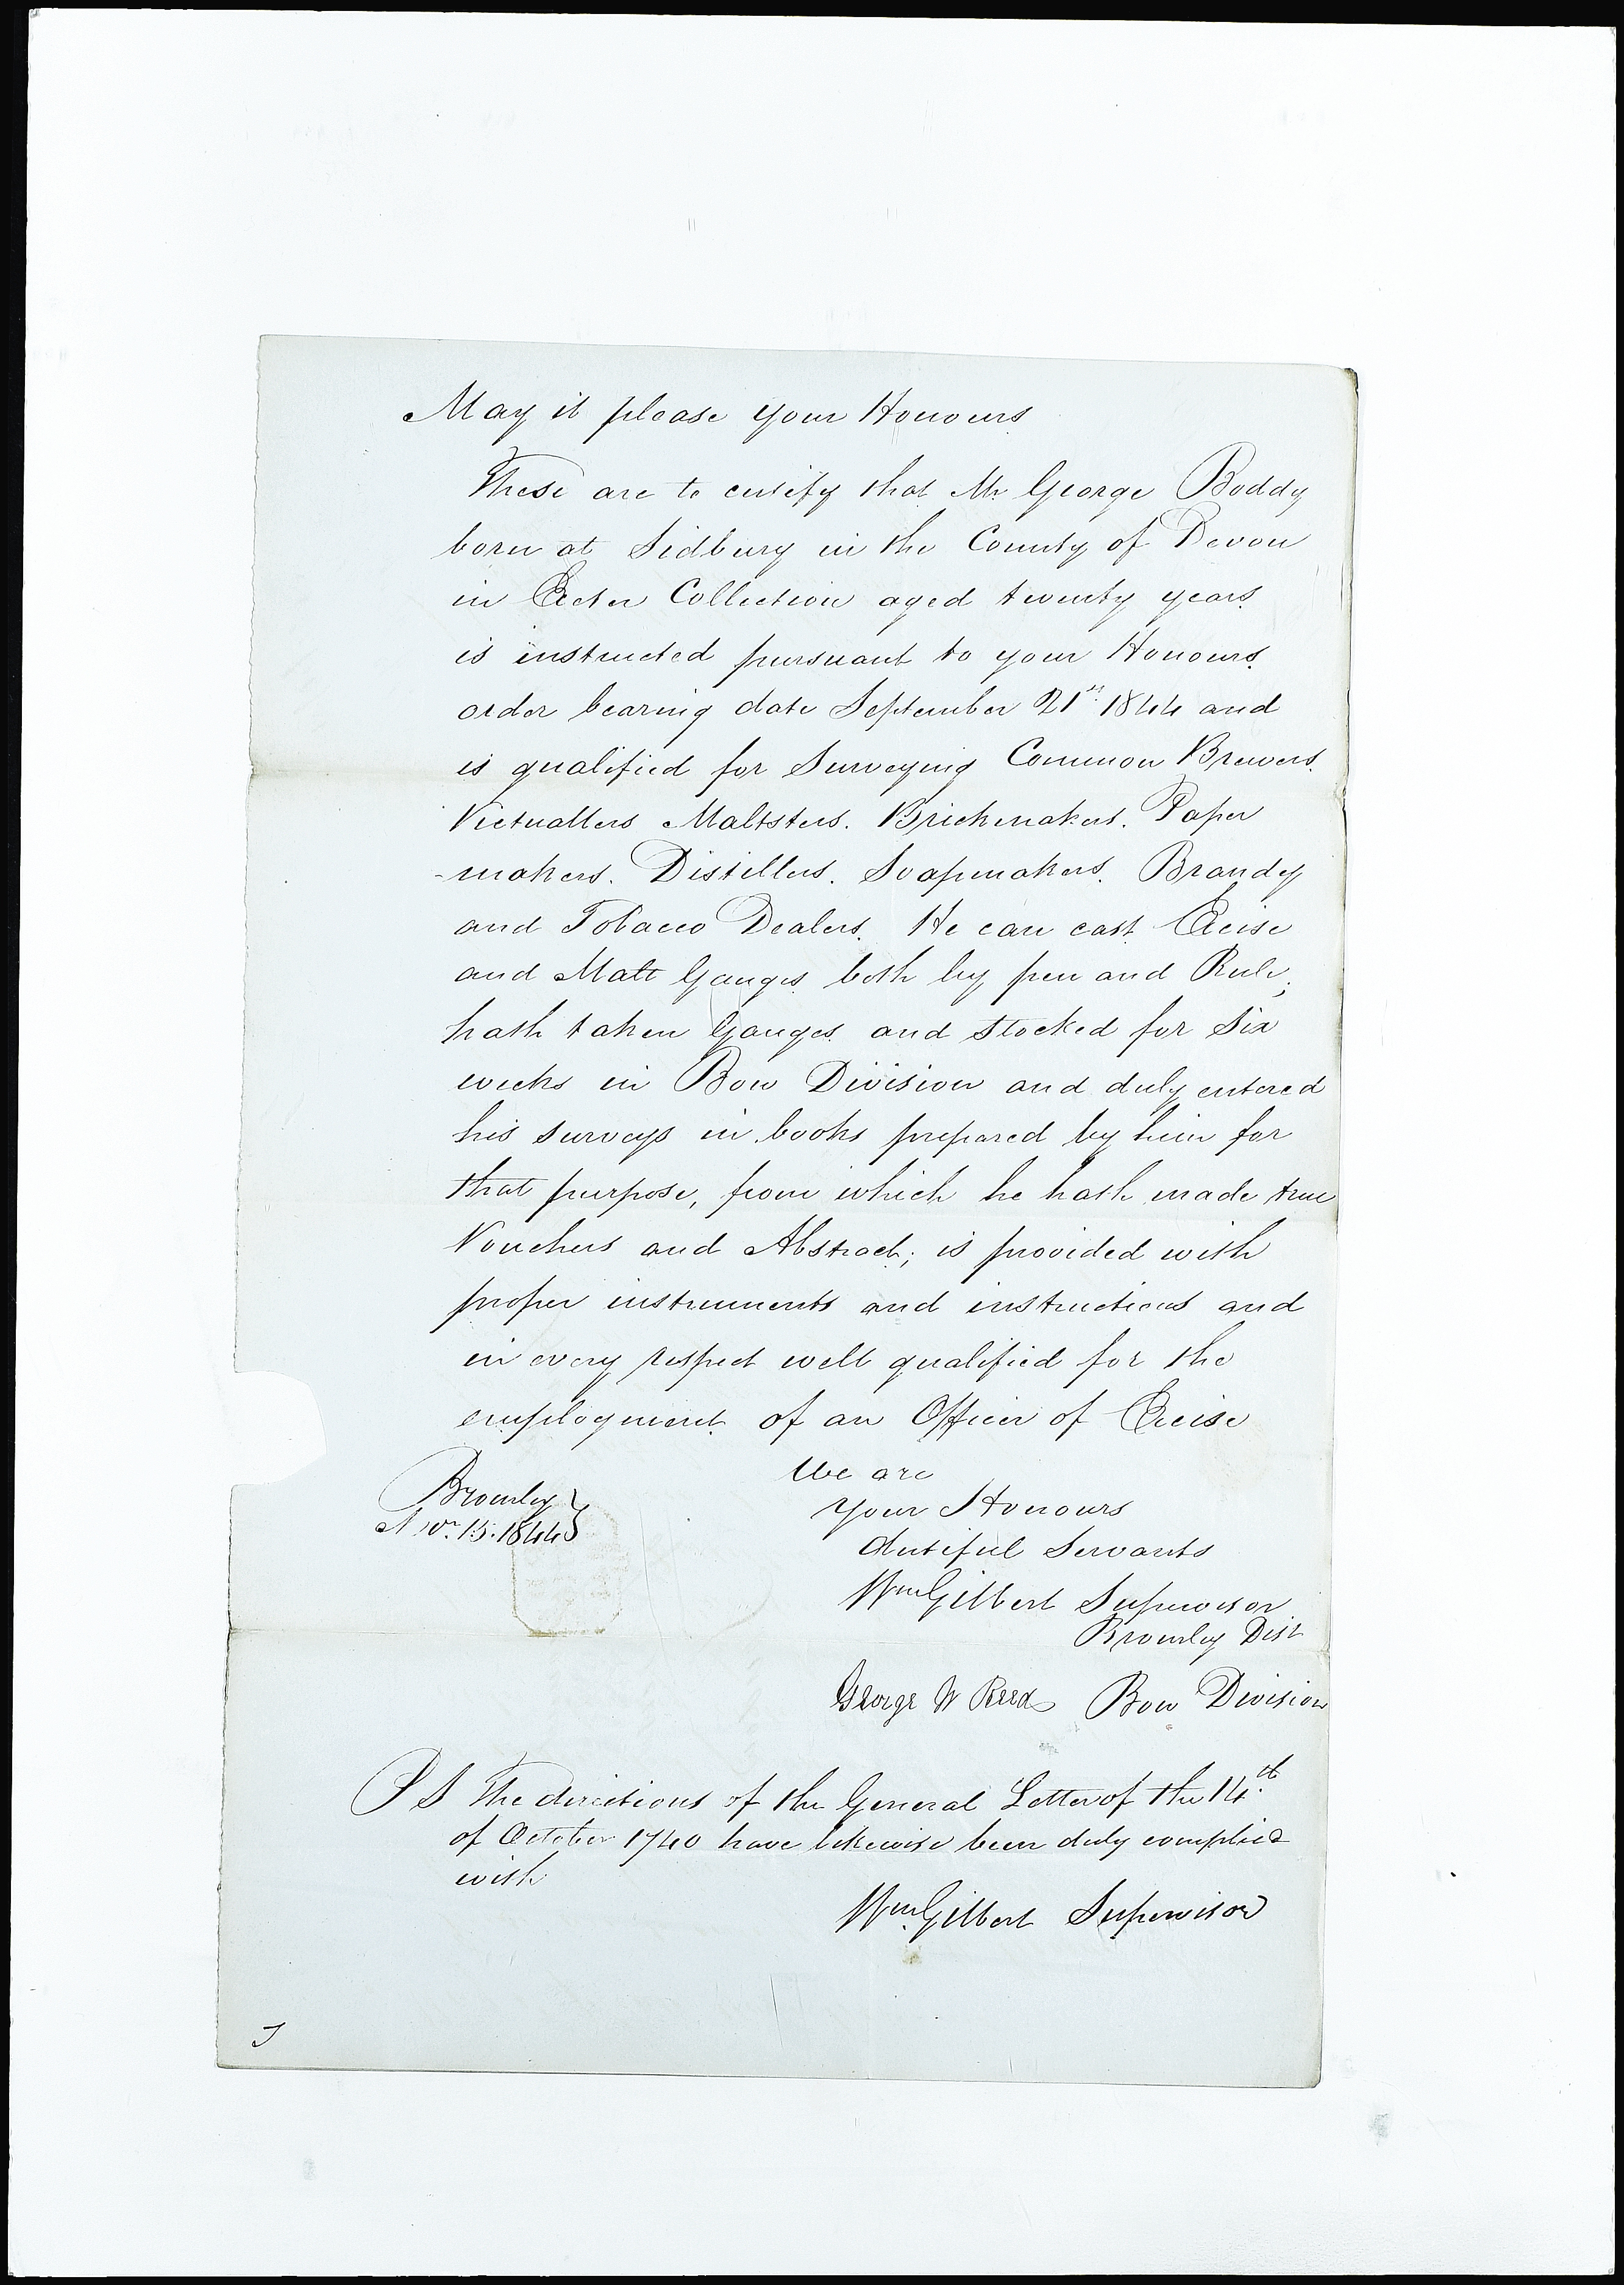 May it please your Honours
These are to certify that Mr George Boddy
born at Sidbury in the County of Devon
in Exeter Collection aged twenty years
is instructed pursuant to your Honours
order bearing date September 21st 1844 and
is qualified for Surveying Common Brewers.
Victuallers Maltsters. Brickmakers. Paper
-makers. Distillers. Soapmakers. Brandy
and Tobacco Dealers. He can cast Excise
and Malt Gauges both by pen and Rule;
hath taken Gauges and stocked for Six
weeks in Bow Division and duly entered
his surveys in books prepared by him for
that purpose, from which he hath made true
Vouchers and Abstract; is provided with
proper instruments and instructions and
in every respect well qualified for the
employment of an Officer of Excise
We are
Your Honours
dutiful Servants
Bromley }
Novr. 15. 1844 }
Wm Gilbert Supervisor
Bromley Dist
George W Reed Bow Division
PS The directions of the General Letter of the 14th
of October 1740 have likewise been duly complied
with
Wm Gilbert Supervisor